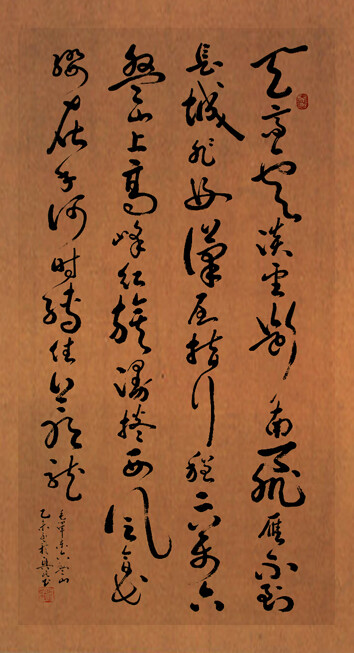 天高云淡望断南飛雁不到
長城非好漢屈指行程二万六
盤山上高峰红旗漫捲西風今日長
缨在手何时缚住苍龙
毛泽东六盘山